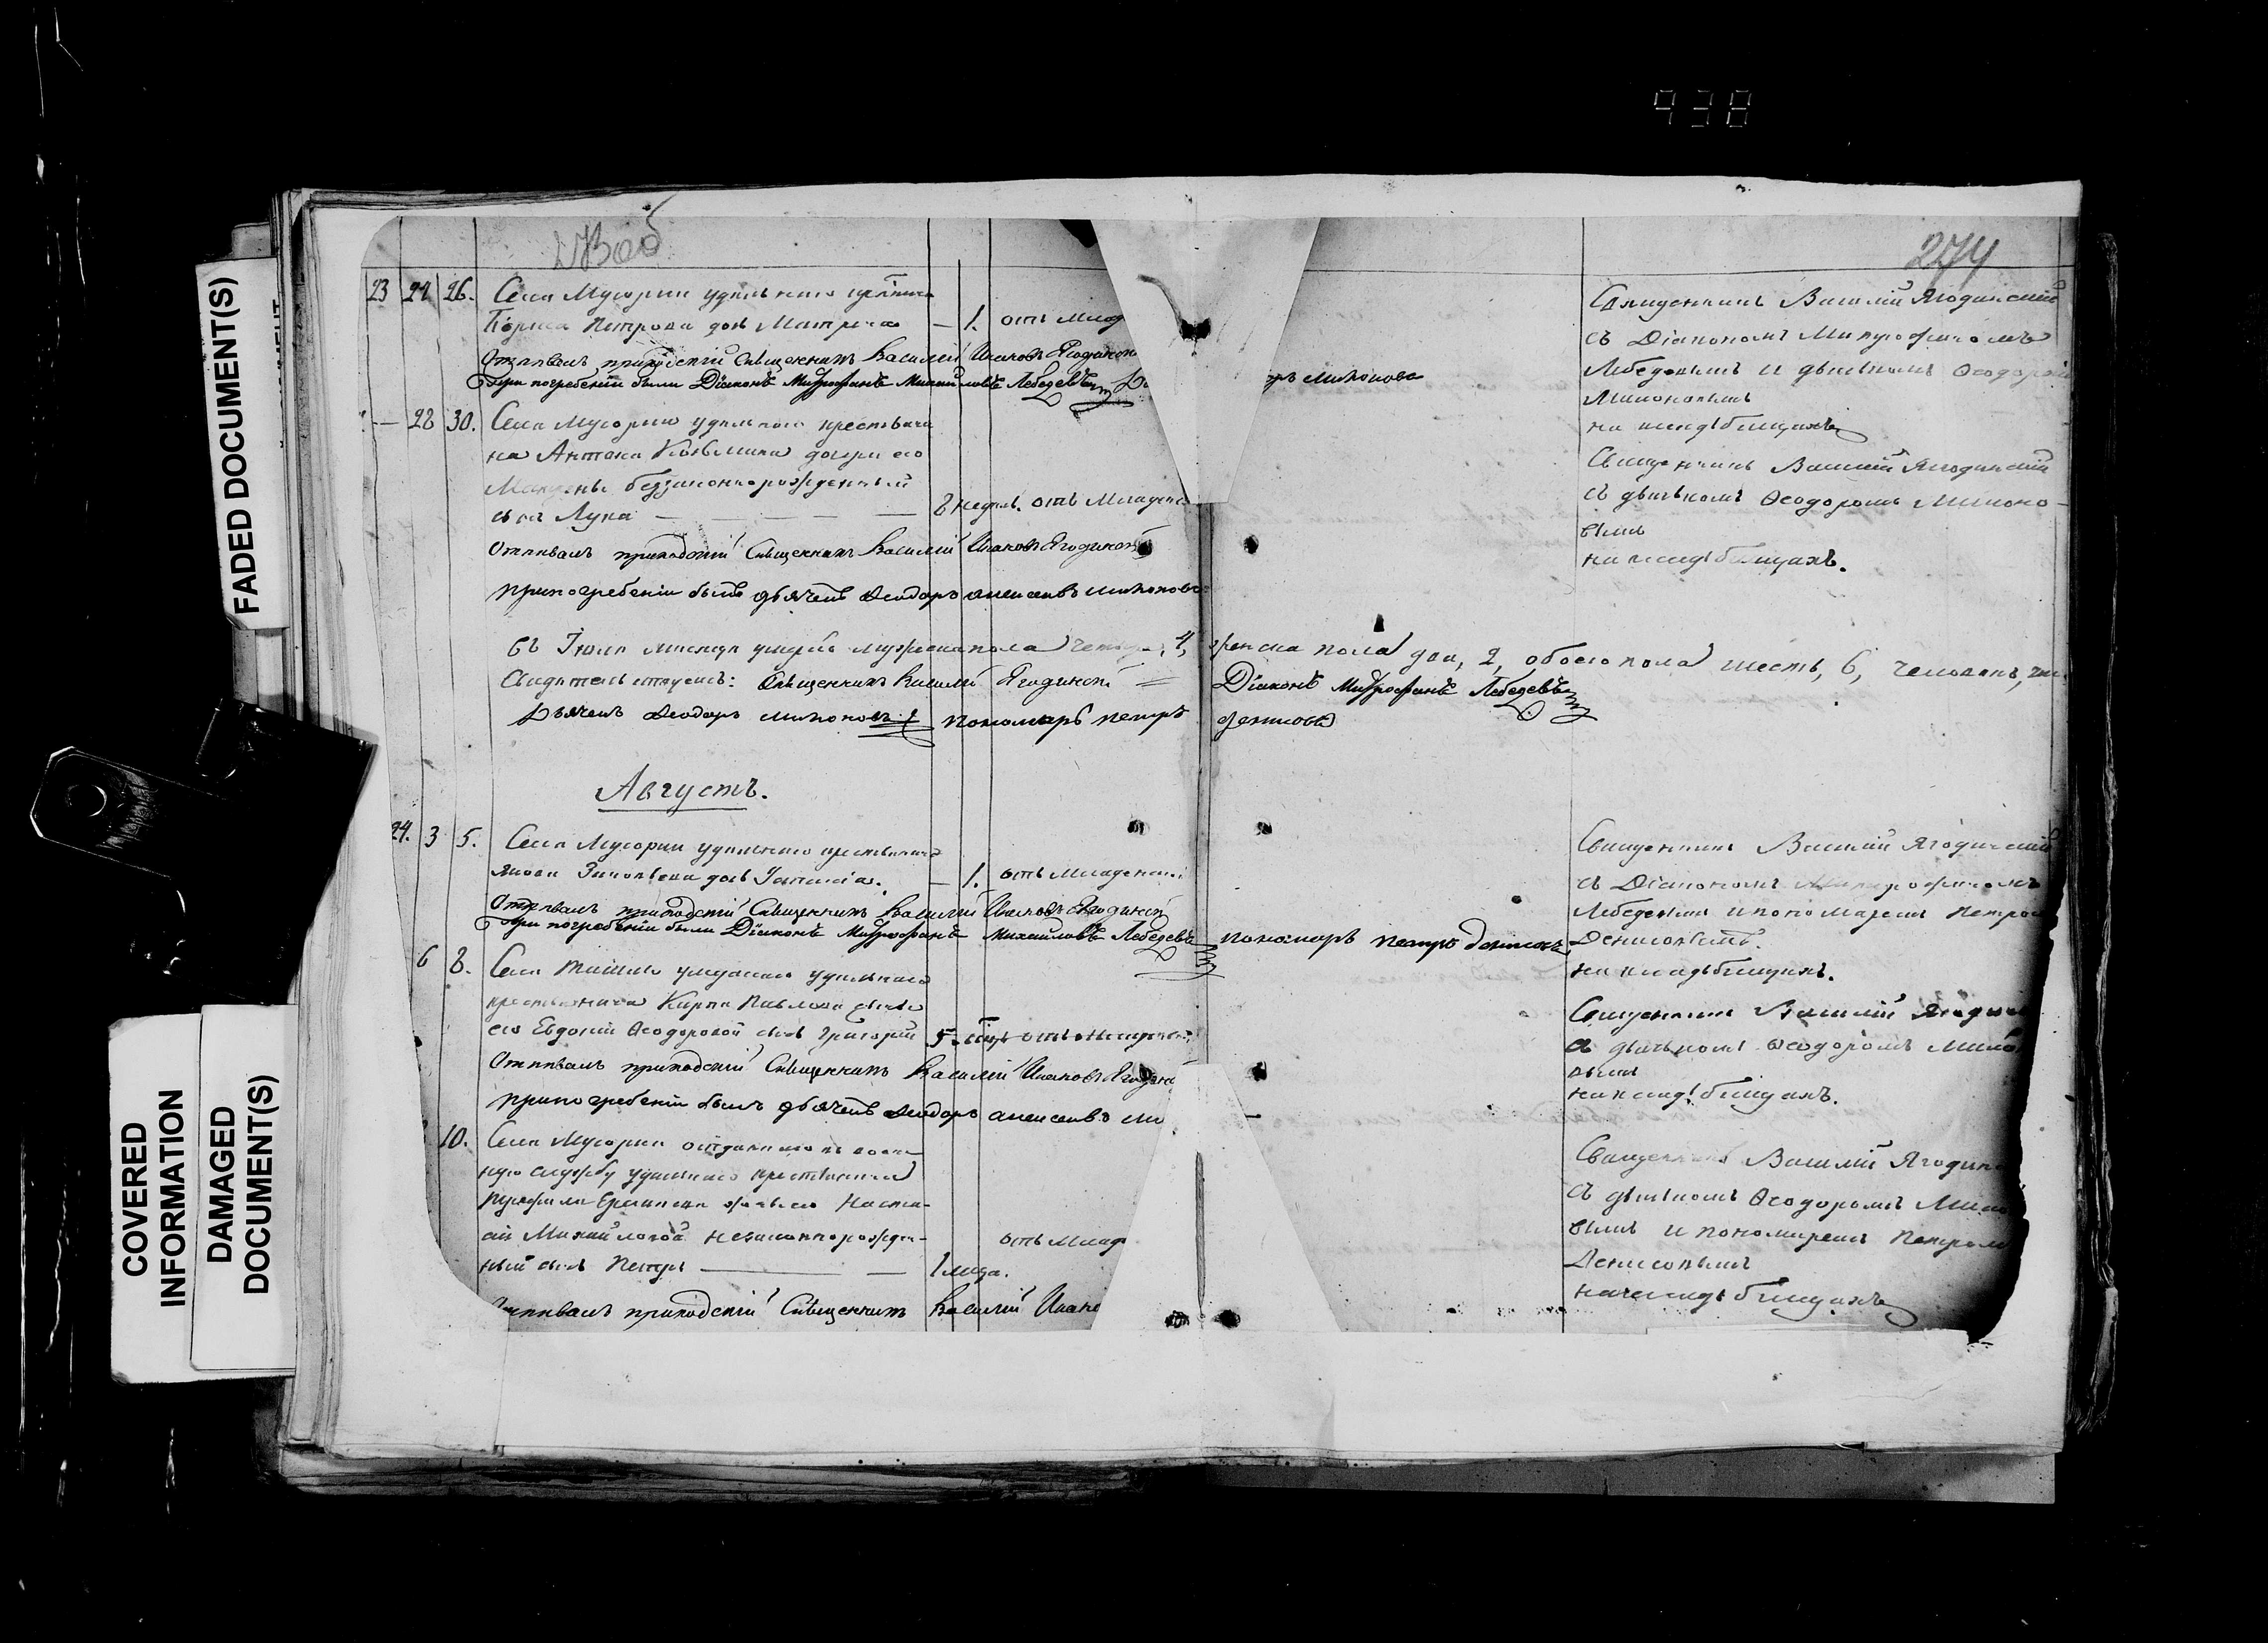 438
274
FADED DOCUMENT(S)
COVERED INFORMATION
DAMAGED DOCUMENT(S)
23 24 26. Села Мусорки удельнаго крестьянина
Бориса Петрова дочь Матрена — 1. отъ млад
Отпѣвалъ приходскій Священникъ Василій Иановъ Ягодинской
При погребеніи были Діаконъ Митрофанъ Михайловъ Лебедевъ
Миноновъ
Священникъ Василій Ягодинскій
съ Діакономъ Митрофаномъ
Лебедевымъ и дьячкомъ Ѳеодоромъ
Миноновымъ
на кладбищахъ
— 28 30. Села Мусорки удельнаго крестьяни
на Антона Козьмина дочери его
беззаконнорожденный
сынъ Лука — 8 недель. отъ младенс
Отпѣвалъ приходскій Священникъ Василій Иановъ Ягодинской
при погребеніи былъ дьячекъ Ѳеодоръ Алексеевъ Миноновъ
Священникъ Василій Ягодинскій
съ дьячкомъ Ѳеодоромъ Миноно-
вымъ
на кладбищахъ.
Въ Іюлѣ месяце умерло мужеска пола четыре, 4, женска пола два, 2, обоего пола шесть, 6, человекъ,
Свидетельствуемъ: Священникъ Василій Ягодинской Діаконъ Митрофанъ Лебедевъ
Дьячекъ Ѳеодоръ Миноновъ пономарь Петръ Денисовъ
Августъ.
24. 3 5. Села Мусорки удельнаго крестьянина
Якова Зиновьева дочь — 1. отъ младенс
Отпѣвалъ приходскій Священникъ Василій Иановъ Ягодинской
При погребеніи были Діаконъ Митрофанъ Михайловъ Лебедевъ пономарь Петръ Денисовъ
Священникъ Василій Ягодинскій
съ Діакономъ Митрофаномъ
Лебедевымъ и пономаремъ Петромъ
Денисовымъ.
на кладбищахъ.
6 8. Села умершаго удельнаго
крестьянина Карпа Павлова
его Евдокіи Ѳеодоровой сынъ Григорій 5
Отпѣвалъ приходскій Священникъ Василій Иановъ Ягодинс
при погребеніи былъ дьячекъ Ѳеодоръ Алексеевъ Ми
Священникъ Василій Ягодин
съ дьячкомъ Ѳеодоромъ Мино
вымъ
на кладбищахъ.
10. Села Мусорки отданнаго въ воен
ную службу удельнаго крестьянина
жены его Наста-
сіи Михайловой незаконнорожден-
ный сынъ Петръ — 1 меся. отъ млад
Отпѣвалъ приходскій Священникъ Василій Иано
Священникъ Василій Ягодин
съ дьячкомъ Ѳеодоромъ Мино
вымъ и пономаремъ Петромъ
Денисовымъ
на кладбищахъ